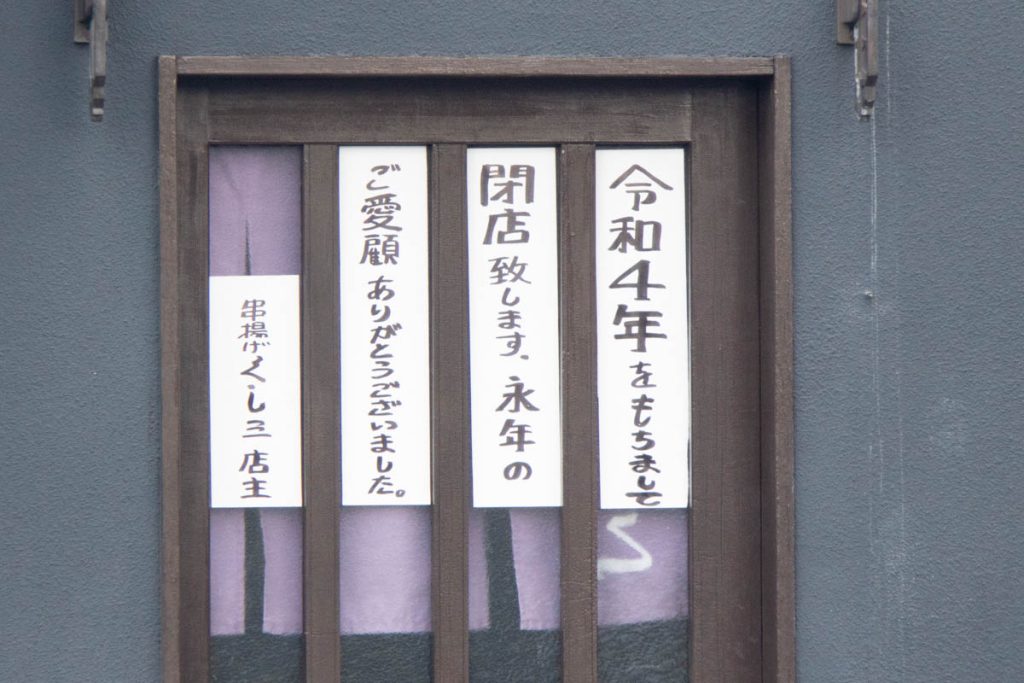 令和4年をもちまして
閉店致します、永年の
ご愛顧ありがとうございました。
串揚げくし三 店主